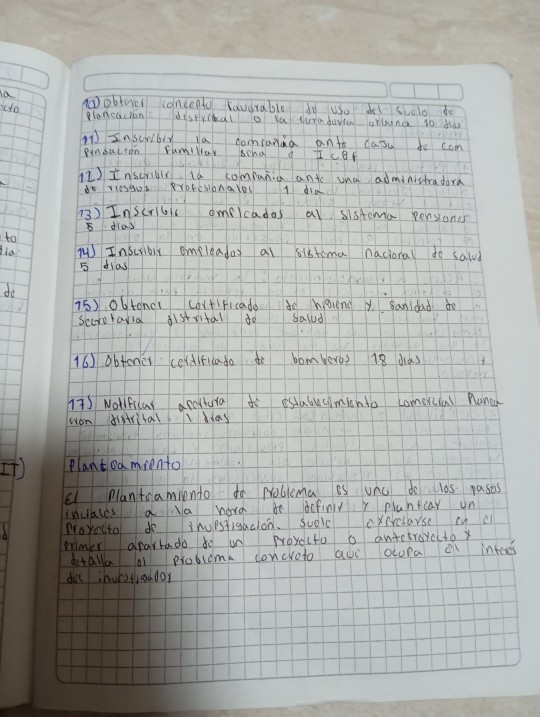 10) Obtener concepto favorable de uso del suelo de
planeación distrital o la curaduria urbana 10 dias
11) Inscribir la compañia ante caja de com
pensación familiar Sena e ICBF
12) Inscribir la compañia ante una administradora
de riesgos profesionales 1 dia
13) Inscribir empleados al sistema pensiones
5 dias
14) Inscribir empleados al sistema nacional de salud
5 dias
15) Obtener certificado de higiene y sanidad de
secretaria distrital de salud
16) Obtener certificado de bomberos 18 dias
17) Notificar apertura de establecimiento comercial Planea
cion distrital 1 dias
Planteamiento
El planteamiento de problema es uno de los pasos
iniciales a la hora de definir y plantear un
proyecto de investigación. Suele en el
primer apartado de un proyecto o anteproyecto y
detalla el problema concreto que ocupa el interés
del investigador